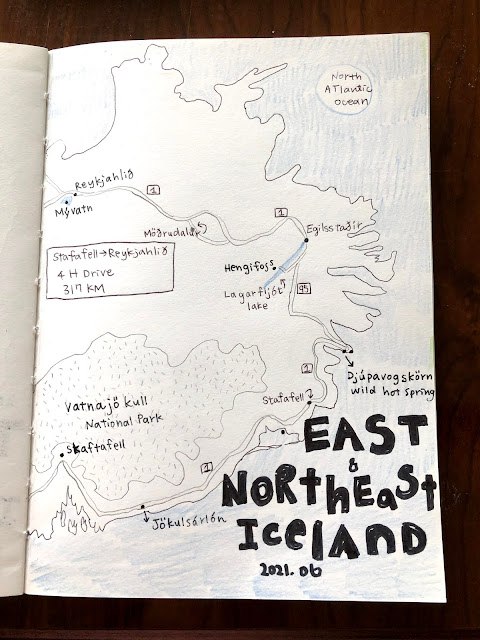 North
Atlantic
Ocean
Reykjahlið
1
Mývatn
Möðrudalur
1
Egilsstaðir
Stafafell→Reykjahlið
4 H Drive
317 KM
Hengifoss
Lagarfljót
lake
95
1
Djúpavogskörn
wild hot spring
Stafafell
Vatnajökull
National Park
Skaftafell
1
Jökulsárlón
EAST
&
NORthEast
ICELAND
2021.06